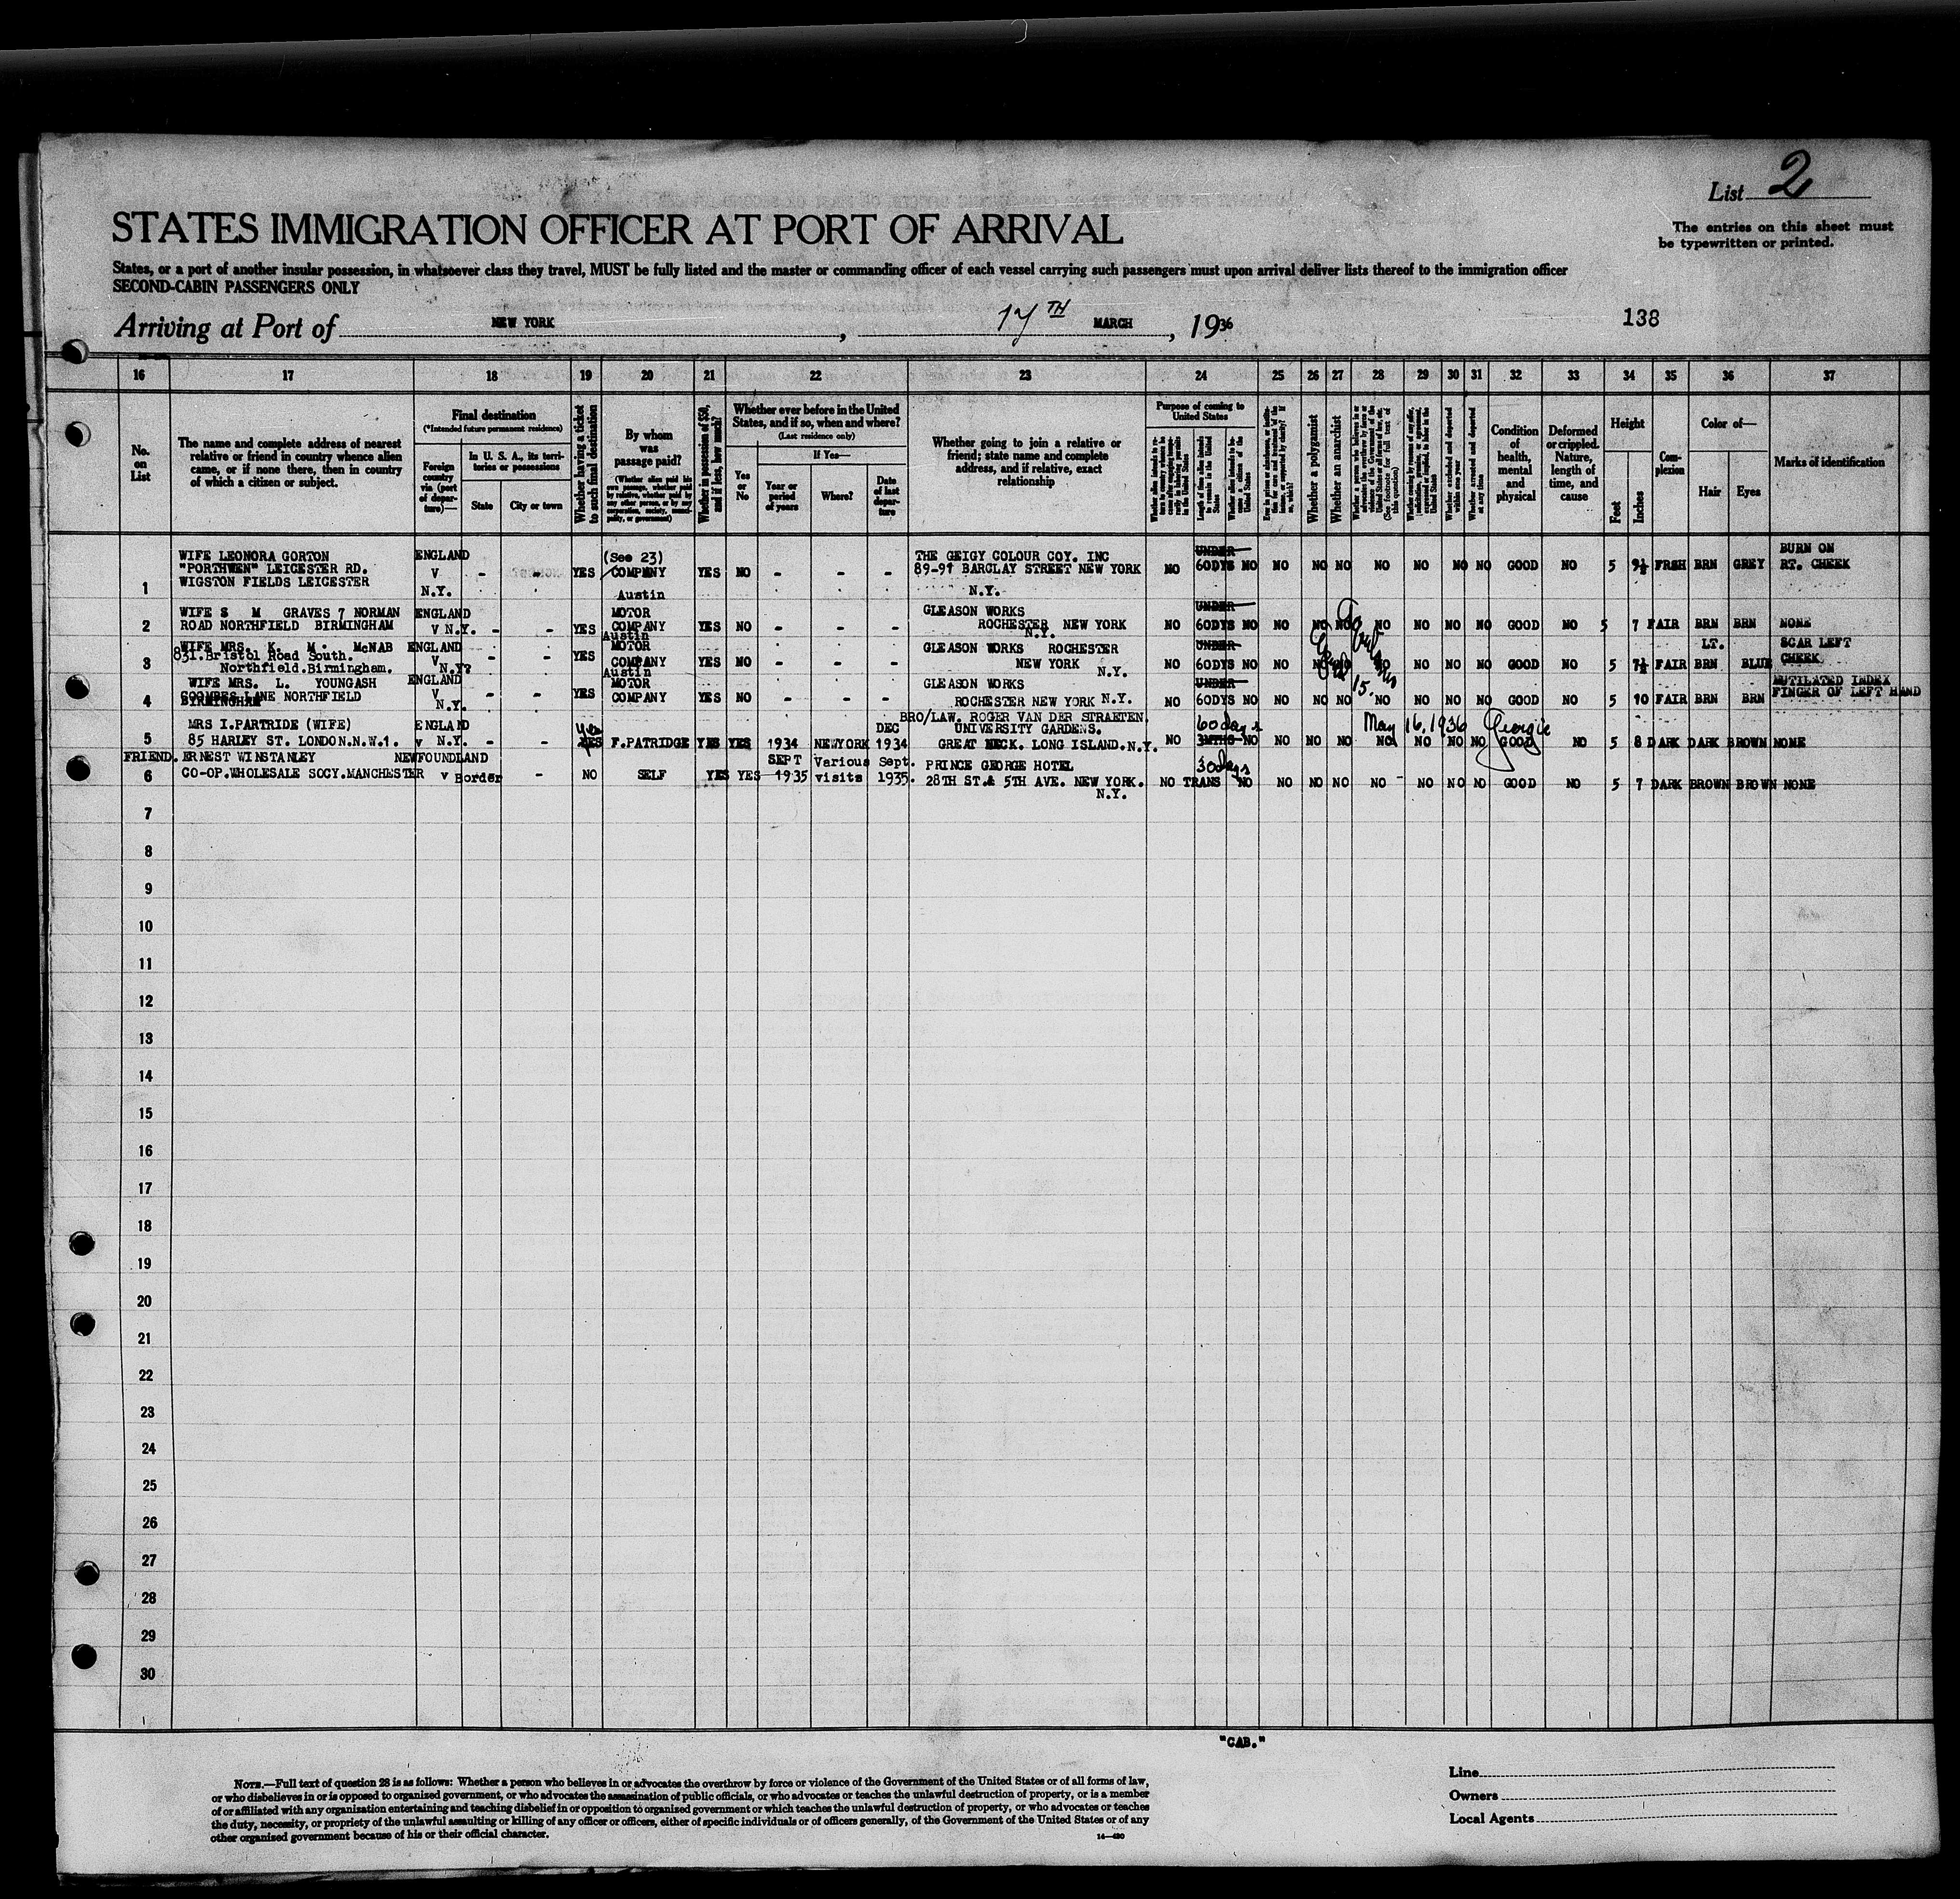 List 2
STATES IMMIGRATION OFFICER AT PORT OF ARRIVAL
The entries on this sheet must
be typewritten or printed.
States, or a port of another insular possession, in whatsoever class they travel, MUST be fully listed and the master or commanding officer of each vessel carrying such passengers must upon arrival deliver lists thereof to the immigration officer
SECOND-CABIN PASSENGERS ONLY
Arriving at Port of NEW YORK, 17TH MARCH, 1936
138
16 17 18 19 20 21 22 23 24 25 26 27 28 29 30 31 32 33 34 35 36 37
No. on List
The name and complete address of nearest
relative or friend in country whence alien
came, or if none there, then in country
of which a citizen or subject.
Final destination
(*Intended future permanent residence)
Foreign country via (port of departure)—
In U. S. A., its territories or possessions
State
City or town
Whether having a ticket to such final destination
By whom was passage paid?
(Whether alien paid his own passage, whether paid by relative, whether paid by any other person, or by any corporation, society, municipality, or government)
Whether in possession of $50, and if less, how much?
Whether ever before in the United States, and if so, when and where?
(Last residence only)
Yes or No
If Yes—
Year or period of years
Where?
Date of last departure
Whether going to join a relative or
friend; state name and complete
address, and if relative, exact
relationship
Purpose of coming to United States
Length of time alien intends to remain in the United States
Whether a polygamist
Whether an anarchist
Whether excluded and deported within one year
Whether arrested and deported at any time
Condition of health, mental and physical
Deformed or crippled. Nature, length of time, and cause
Height
Feet
Inches
Complexion
Color of—
Hair
Eyes
Marks of identification
1 WIFE LEONORA GORTON ENGLAND (See 23) THE GEIGY COLOUR COY. INC UNDER BURN ON
"PORTHWEN" LEICESTER RD. V - - YES COMPANY YES NO - - - 89-91 BARCLAY STREET NEW YORK NO 60DYS NO NO NO NO NO NO NO NO GOOD NO 5 9½ FRSH BRN GREY RT. CHEEK
WIGSTON FIELDS LEICESTER N.Y. N.Y.
2 WIFE S M GRAVES 7 NORMAN ENGLAND Austin MOTOR GLEASON WORKS UNDER
ROAD NORTHFIELD BIRMINGHAM V N.Y. - - YES COMPANY YES NO - - - ROCHESTER NEW YORK N.Y. NO 60DYS NO NO NO NO NO NO NO NO GOOD NO 5 7 FAIR BRN BRN NONE
3 WIFE MRS. K. M. McNAB ENGLAND Austin MOTOR GLEASON WORKS ROCHESTER UNDER LT. SCAR LEFT
831.Bristol Road South. V - - YES COMPANY YES NO - - - NEW YORK NO 60DYS NO NO NO NO NO NO NO NO GOOD NO 5 7½ FAIR BRN BLUE CHEEK
Northfield.Birmingham. N.Y? N.Y.
4 WIFE MRS. L. YOUNGASH ENGLAND Austin MOTOR GLEASON WORKS UNDER MUTILATED INDEX
COOMBES LANE NORTHFIELD V - - YES COMPANY YES NO - - - ROCHESTER NEW YORK N.Y. NO 60DYS NO NO NO NO NO NO NO NO GOOD NO 5 10 FAIR BRN BRN FINGER OF LEFT HAND
BIRMINGHAM N.Y.
15.
MRS I.PARTRIDE (WIFE) ENGLAND yes DEC BRO/LAW. ROGER VAN DER STRAETEN. 60 days May 16, 1936 Georgic
UNIVERSITY GARDENS.
5 85 HARLEY ST. LONDON.N.W.1. v N.Y. - - YES F.PATRIDGE YES YES 1934 NEWYORK 1934 GREAT NECK. LONG ISLAND.N.Y. NO 3MTHS NO NO NO NO NO NO NO NO GOOD NO 5 8 DARK DARK BROWN NONE
FRIEND. ERNEST WINSTANLEY NEWFOUNDLAND SEPT Various Sept. PRINCE GEORGE HOTEL 30days
6 CO-OP.WHOLESALE SOCY.MANCHESTER v Border - NO SELF YES YES 1935 visits 1935. 28TH ST.& 5TH AVE. NEW YORK. NO TRANS NO NO NO NO NO NO NO NO GOOD NO 5 7 DARK BROWN BROWN NONE
N.Y.
7
8
9
10
11
12
13
14
15
16
17
18
19
20
21
22
23
24
25
26
27
28
29
30
"CAB."
NOTE.—Full text of question 28 is as follows: Whether a person who believes in or advocates the overthrow by force or violence of the Government of the United States or of all forms of law,
or who disbelieves in or is opposed to organized government, or who advocates the assassination of public officials, or who advocates or teaches the unlawful destruction of property, or is a member
of or affiliated with any organization entertaining and teaching disbelief in or opposition to organized government or which teaches the unlawful destruction of property, or who advocates or teaches
the duty, necessity, or propriety of the unlawful assaulting or killing of any officer or officers, either of specific individuals or of officers generally, of the Government of the United States or of any
other organized government because of his or their official character.
14—430
Line
Owners
Local Agents